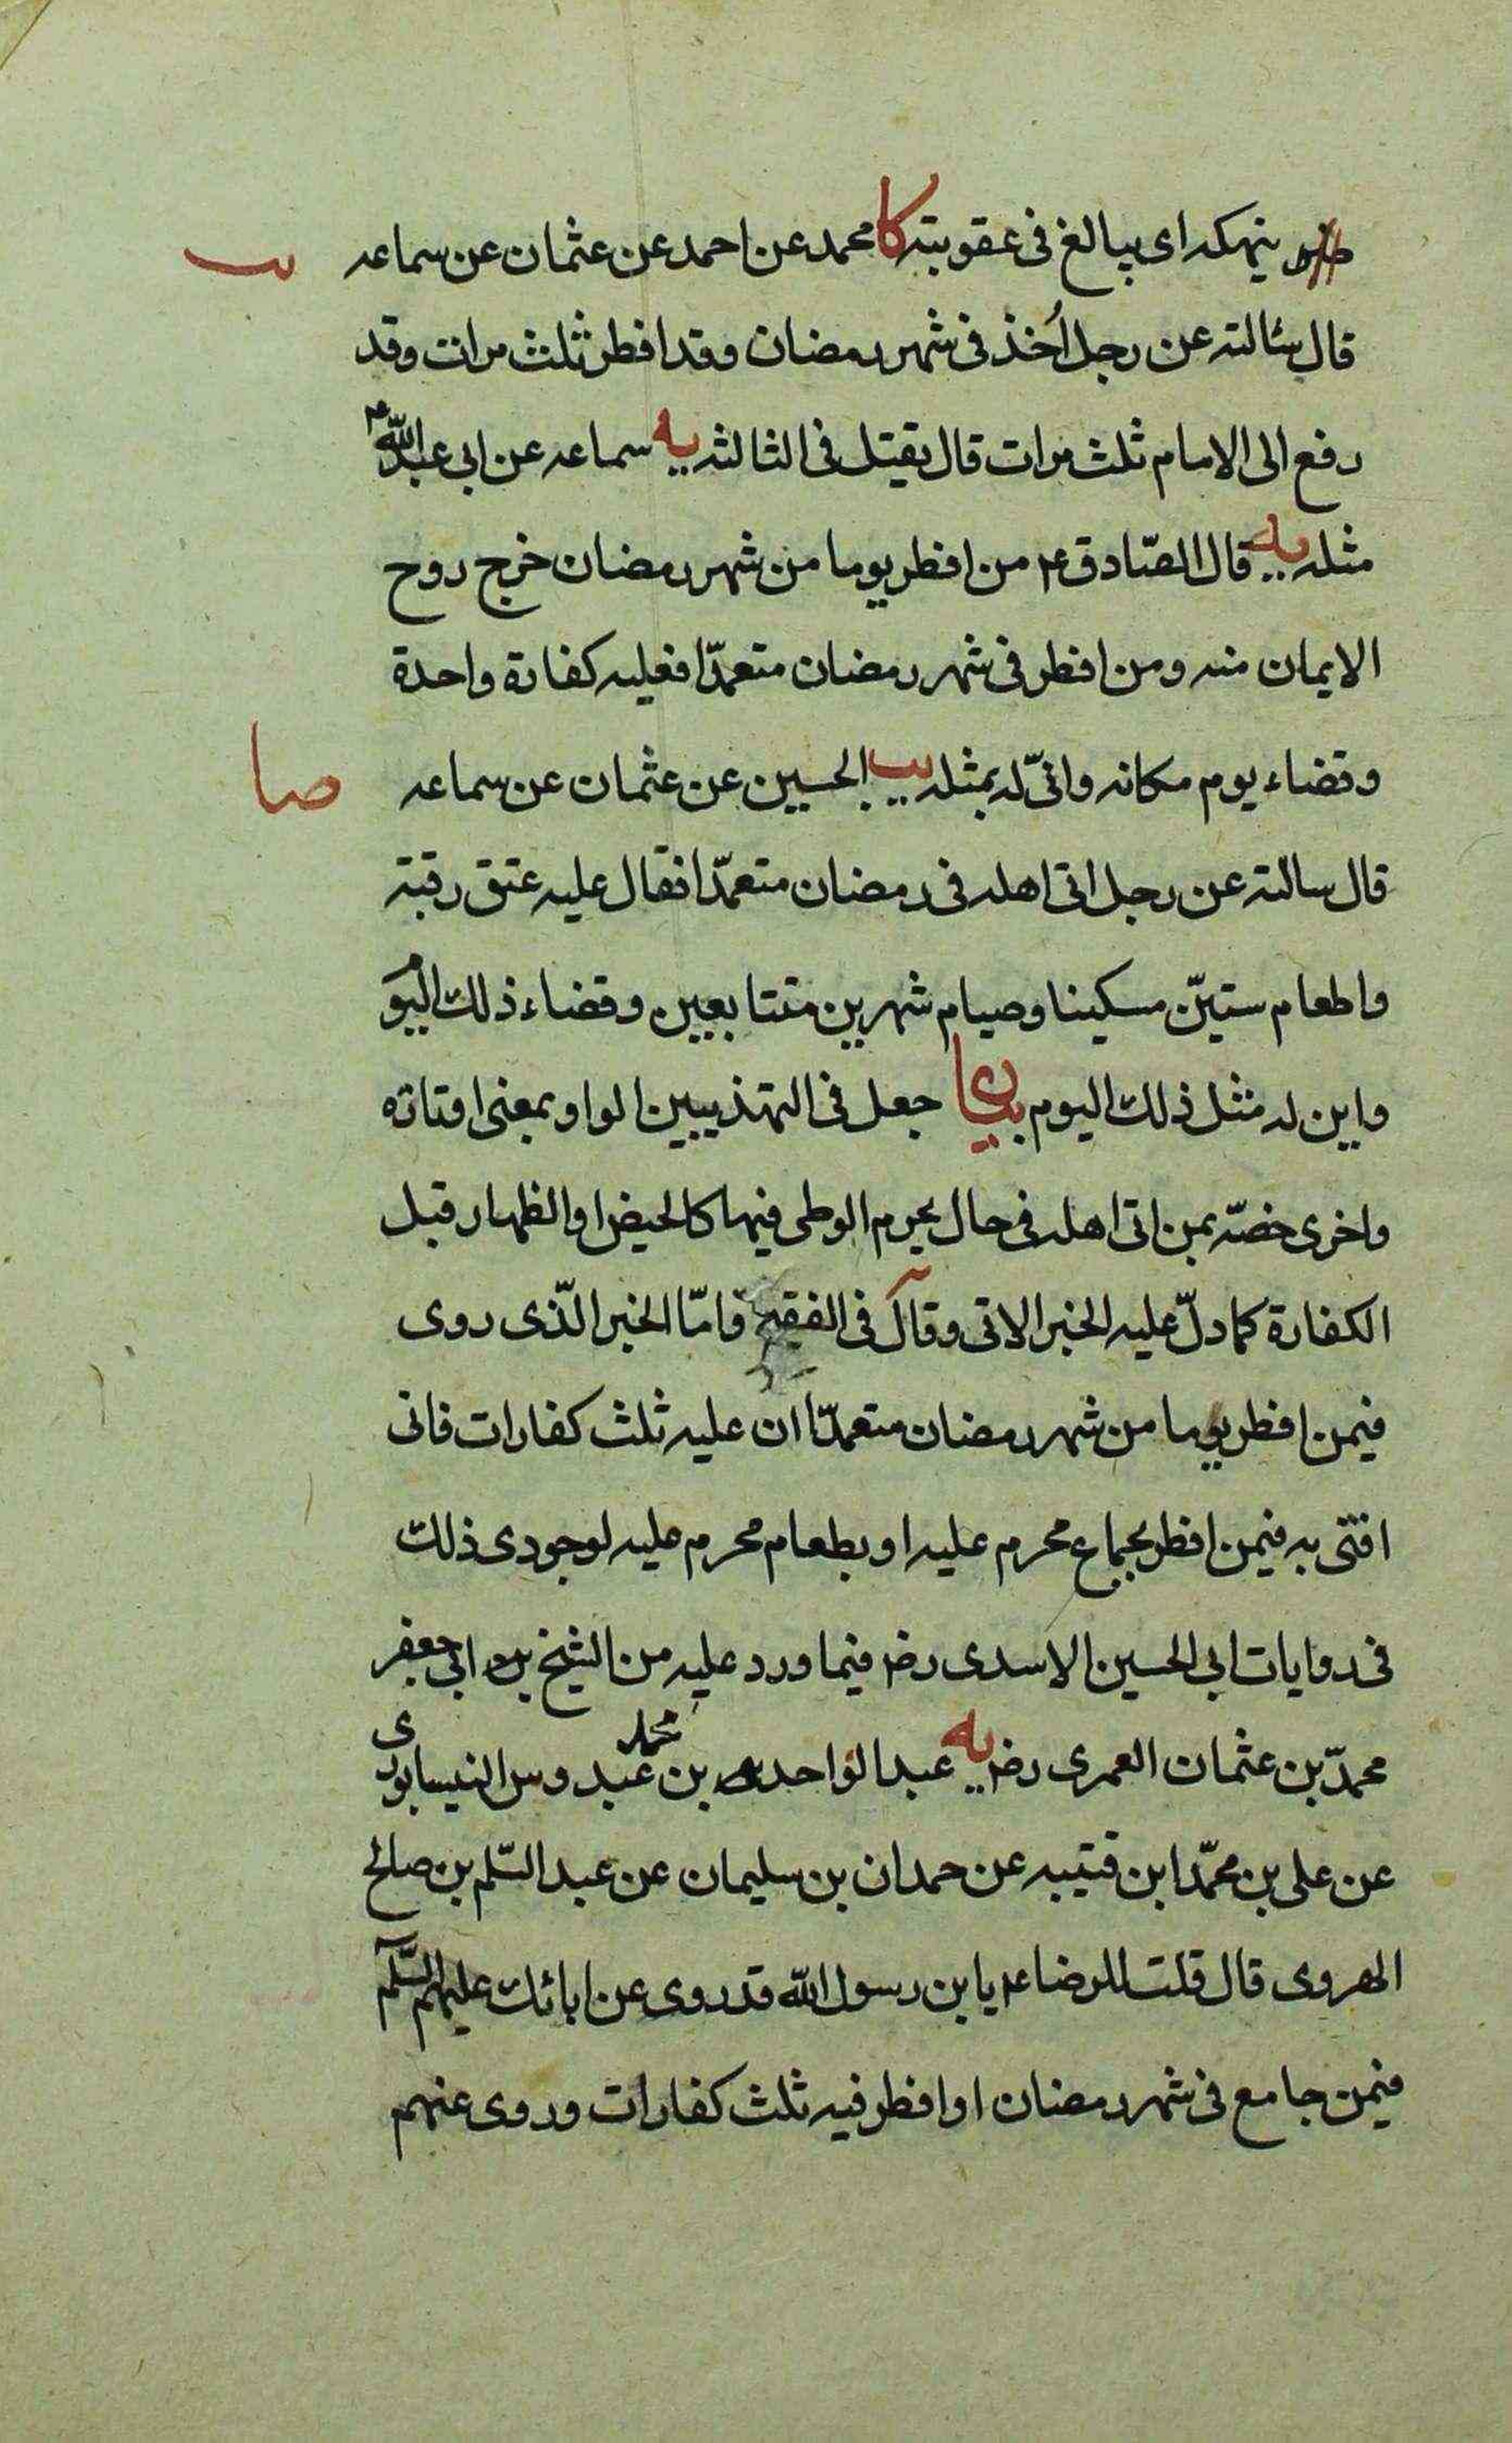 ينهكه اى يبالغ فى عقوبته كا محمد عن احمد عن عثمان عن سماعه يب
قال سئالته عن رجل اُخذ فى شهر رمضان وقد افطر ثلث مرات وقد
رفع الى الامام ثلث مرات قال يقتل فى الثالثه يه سماعه عن ابى عبد اللّه ع
مثله يه قال الصّادق ع من افطر يوما من شهر رمضان خرج روح
الايمان منه ومن افطر فى شهر رمضان متعمدّا فعليه كفارة واحدة
وقضاء يوم مكانه وانىّ له بمثله يب الحسين عن عثمان عن سماعه صا
قال سالته عن رجل اتى اهله فى رمضان متعمدّا فقال عليه عتق رقبة
واطعام ستيّن مسكينا وصيام شهرين متتابعين وقضاء ذلك اليوم
واين له مثل ذلك اليوم بيان جعل فى التهذيبين الواو بمعنى او تاره
واخرى خصّه بمن اتى اهله فى حال يحرم الوطى فيها كالحيض او الظهار قبل
الكفارة كما دلّ عليه الخبر الاتى وقال فى الفقيه وامّا الخبر الّذى روى
فيمن افطر يوما من شهر رمضان متعمدّا ان عليه ثلث كفارات فانى
افتى به فيمن افطر بجماع محرم عليه او بطعام محرم عليه لوجودى ذلك
فى روايات ابى الحسين الاسدى رضر فيما ورد عليه من الشيخ ابى جعفر
محمدّ بن عثمان العمرى رضر يه عبد الواحد بن محمد بن عبدوس النيسابورى
عن على بن محمّد ابن قتيبه عن حمدان بن سليمان عن عبد السّلم بن صالح
الهروى قال قلت للرضا ع يابن رسول اللّه قد روى عن ابائك عليهم السّلم
فيمن جامع فى شهر رمضان او افطر فيه ثلث كفارات وروى عنهم